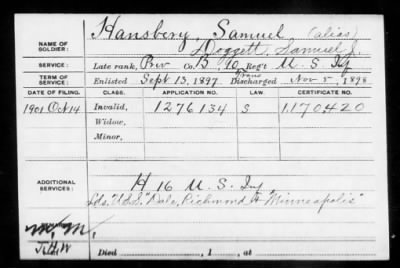 Hansbery, Samuel (alias)
NAME OF SOLDIER: Doggett, Samuel J.
SERVICE: Late rank, Priv Co. B, 10 Regt U. S. Inf
TERM OF SERVICE: Enlisted Sept 13, 1897 Trans Discharged Nov 5, 1898
DATE OF FILING. CLASS. APPLICATION NO. LAW. CERTIFICATE NO.
1901 Oct 14 Invalid, 1276134 S 1,170,420
Widow,
Minor,
ADDITIONAL SERVICES: H 16 U. S. Inf
Lds. U.S.S. "Dale, Richmond & Minneapolis"
J.H.W
Died , 1 , at